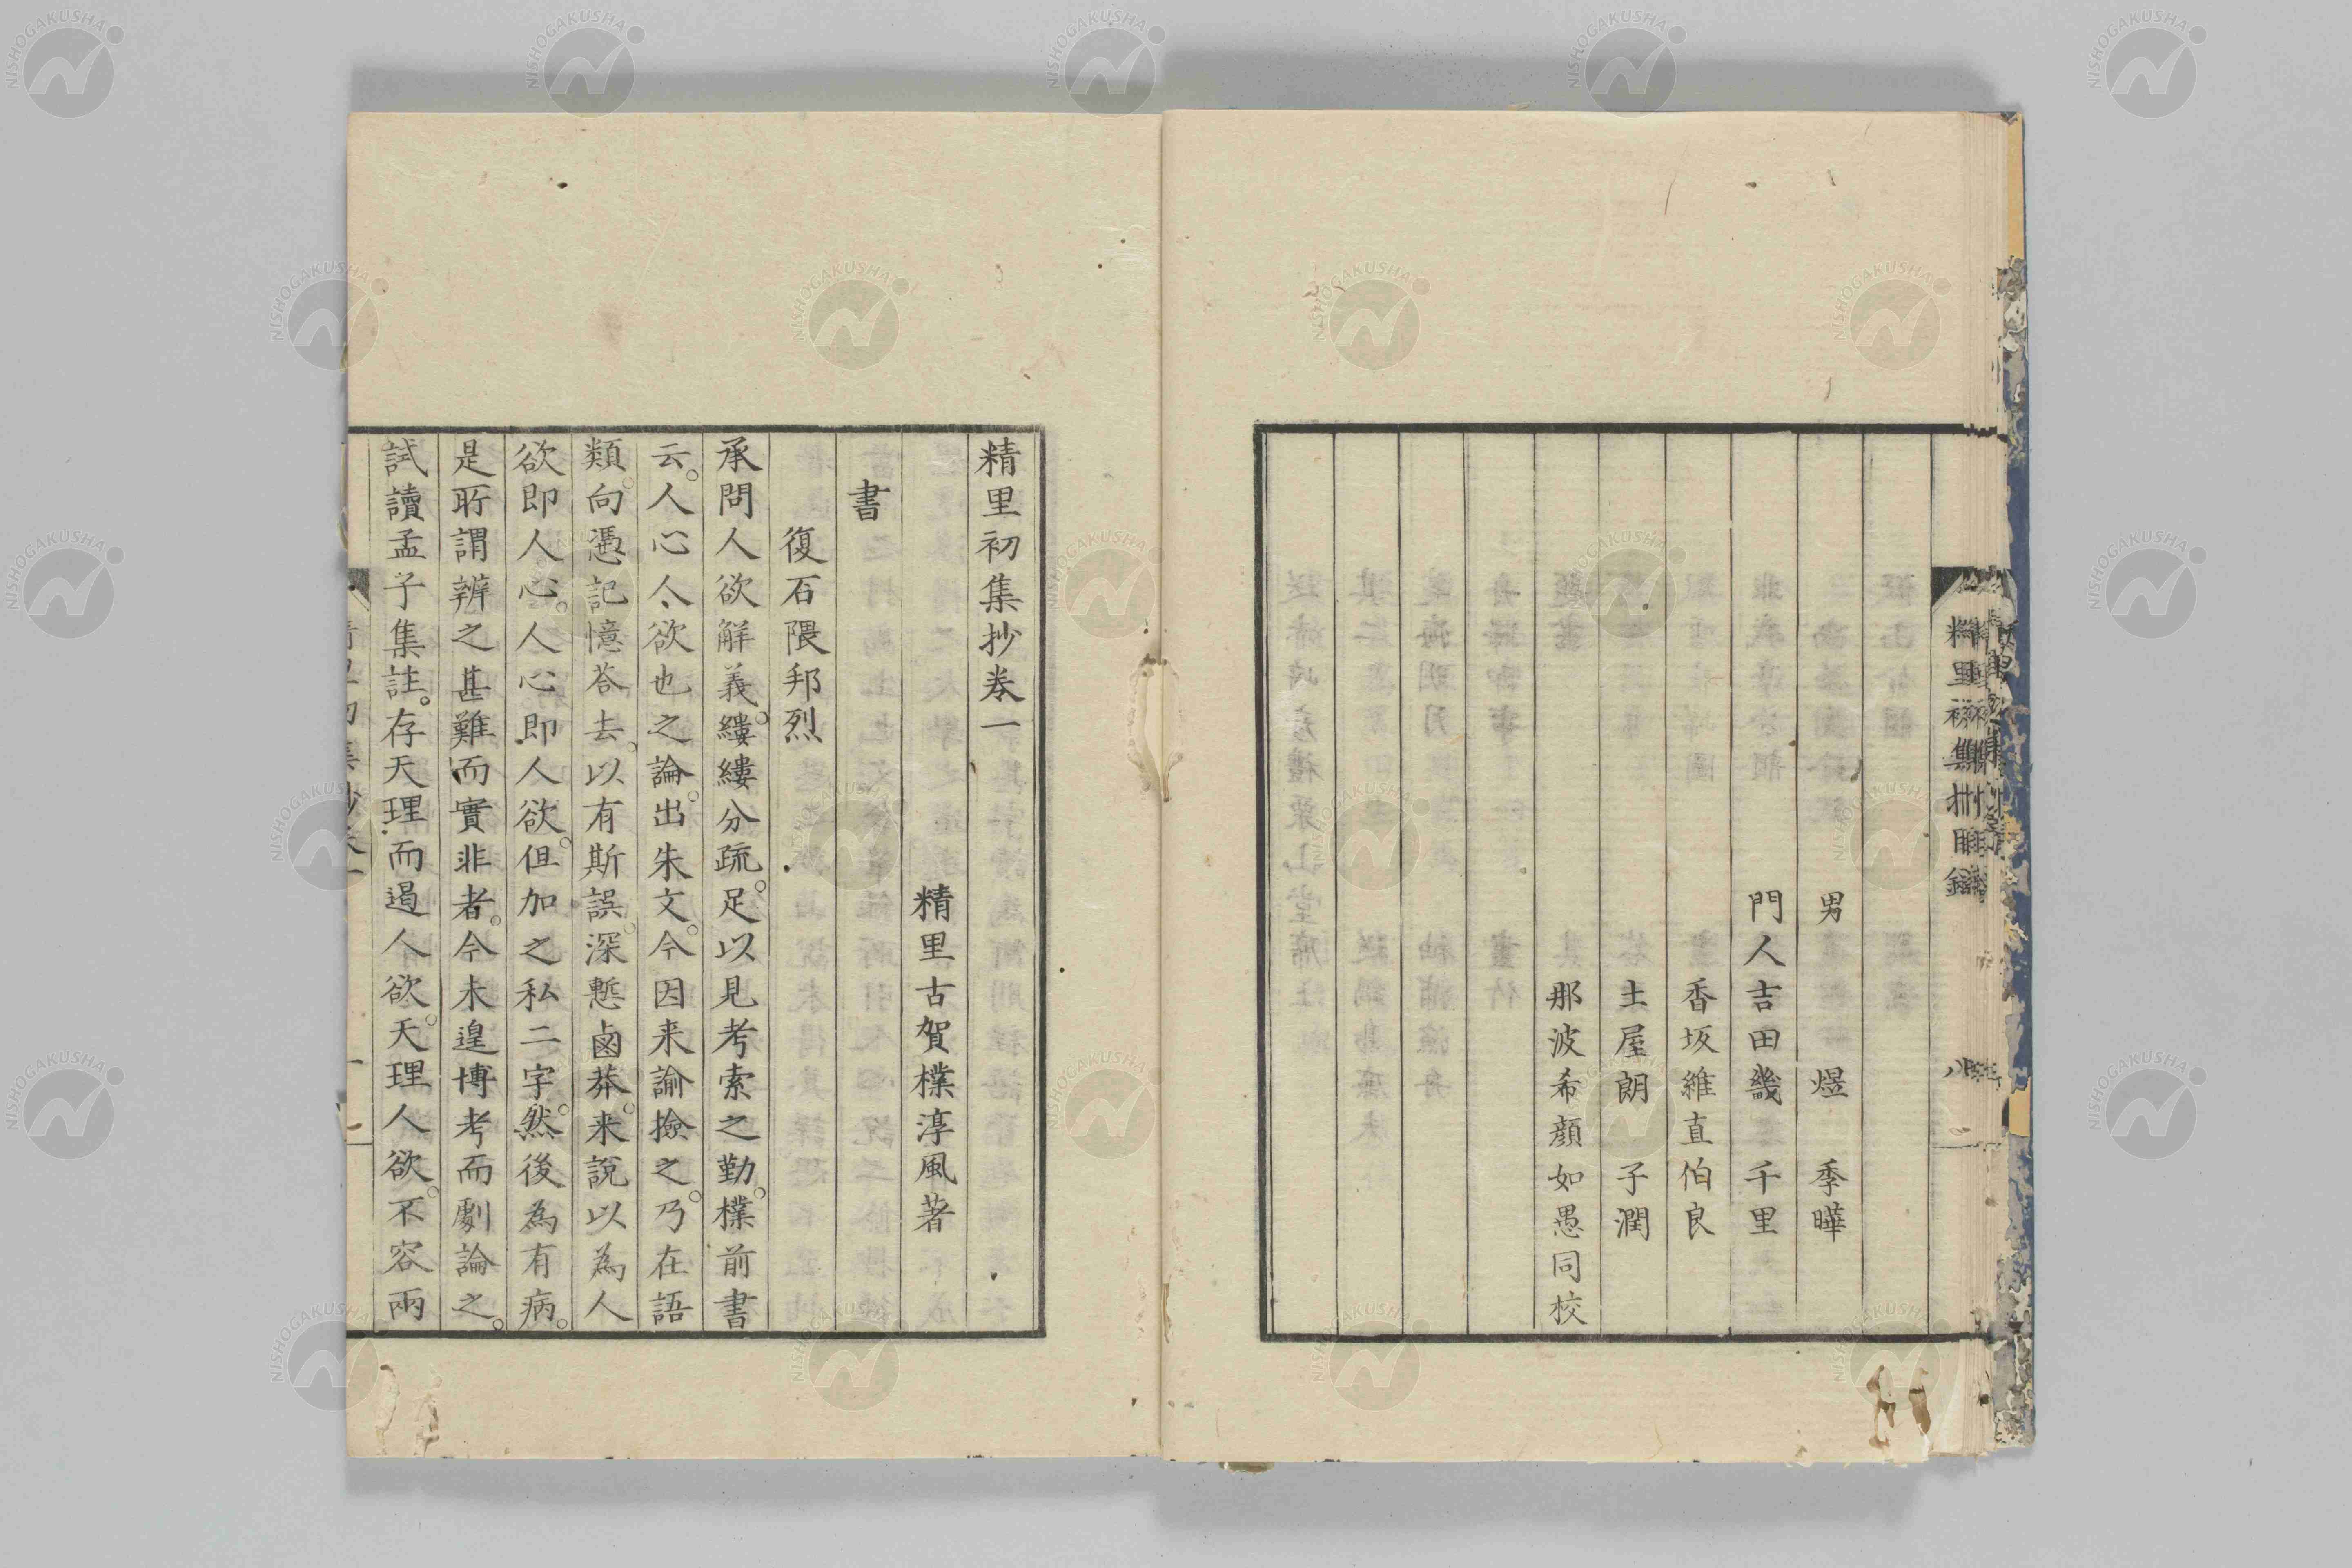 男　煜　季曄
門人吉田幾　千里
香坂維直伯良
土屋朗　子潤
那波希顔如愚同校
精里初集抄卷一
精里古賀樸淳風著
書
復石隈邦烈
承問人欲解義。縷縷分疏。足以見考索之勤。樸前書
云。人心人欲也之論。出朱文。今因来諭撿之。乃在語
類。向憑記憶答去。以有斯誤。深慙鹵莽。来說以為人
欲即人心。人心即人欲。但加之私二字。然後為有病。
是所謂辨之甚難而實非者。今未遑博考而劇論之。
試讀孟子集註。存天理而遏人欲。天理人欲。不容兩
NISHOGAKUSHA